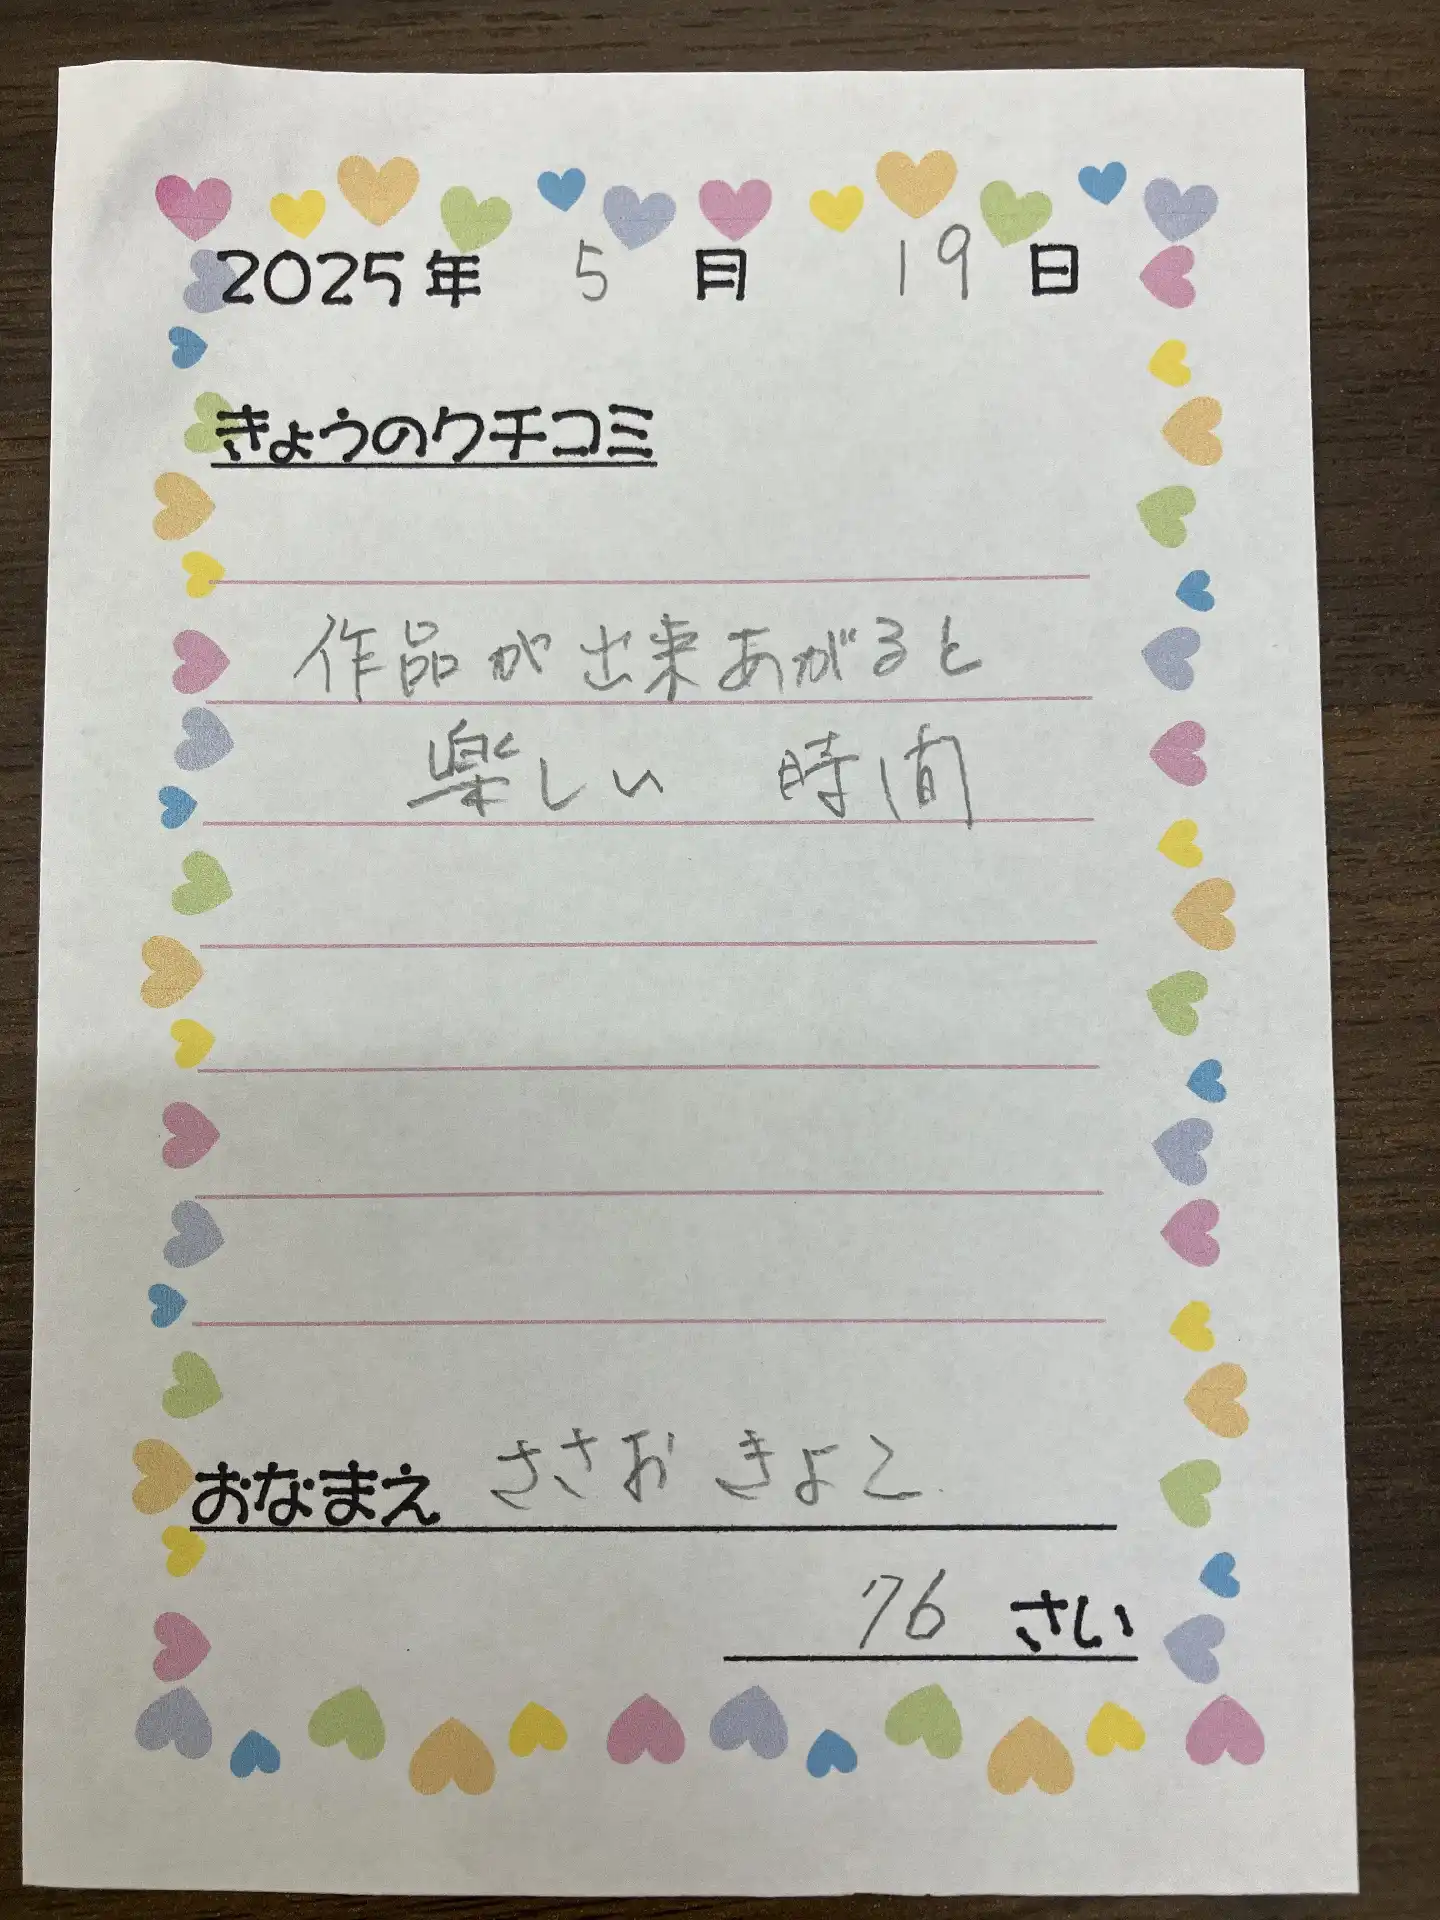 2025年 5月 19日
きょうのクチコミ
作品が出来あがると
楽しい 時間
おなまえ ささお きよこ
76 さい